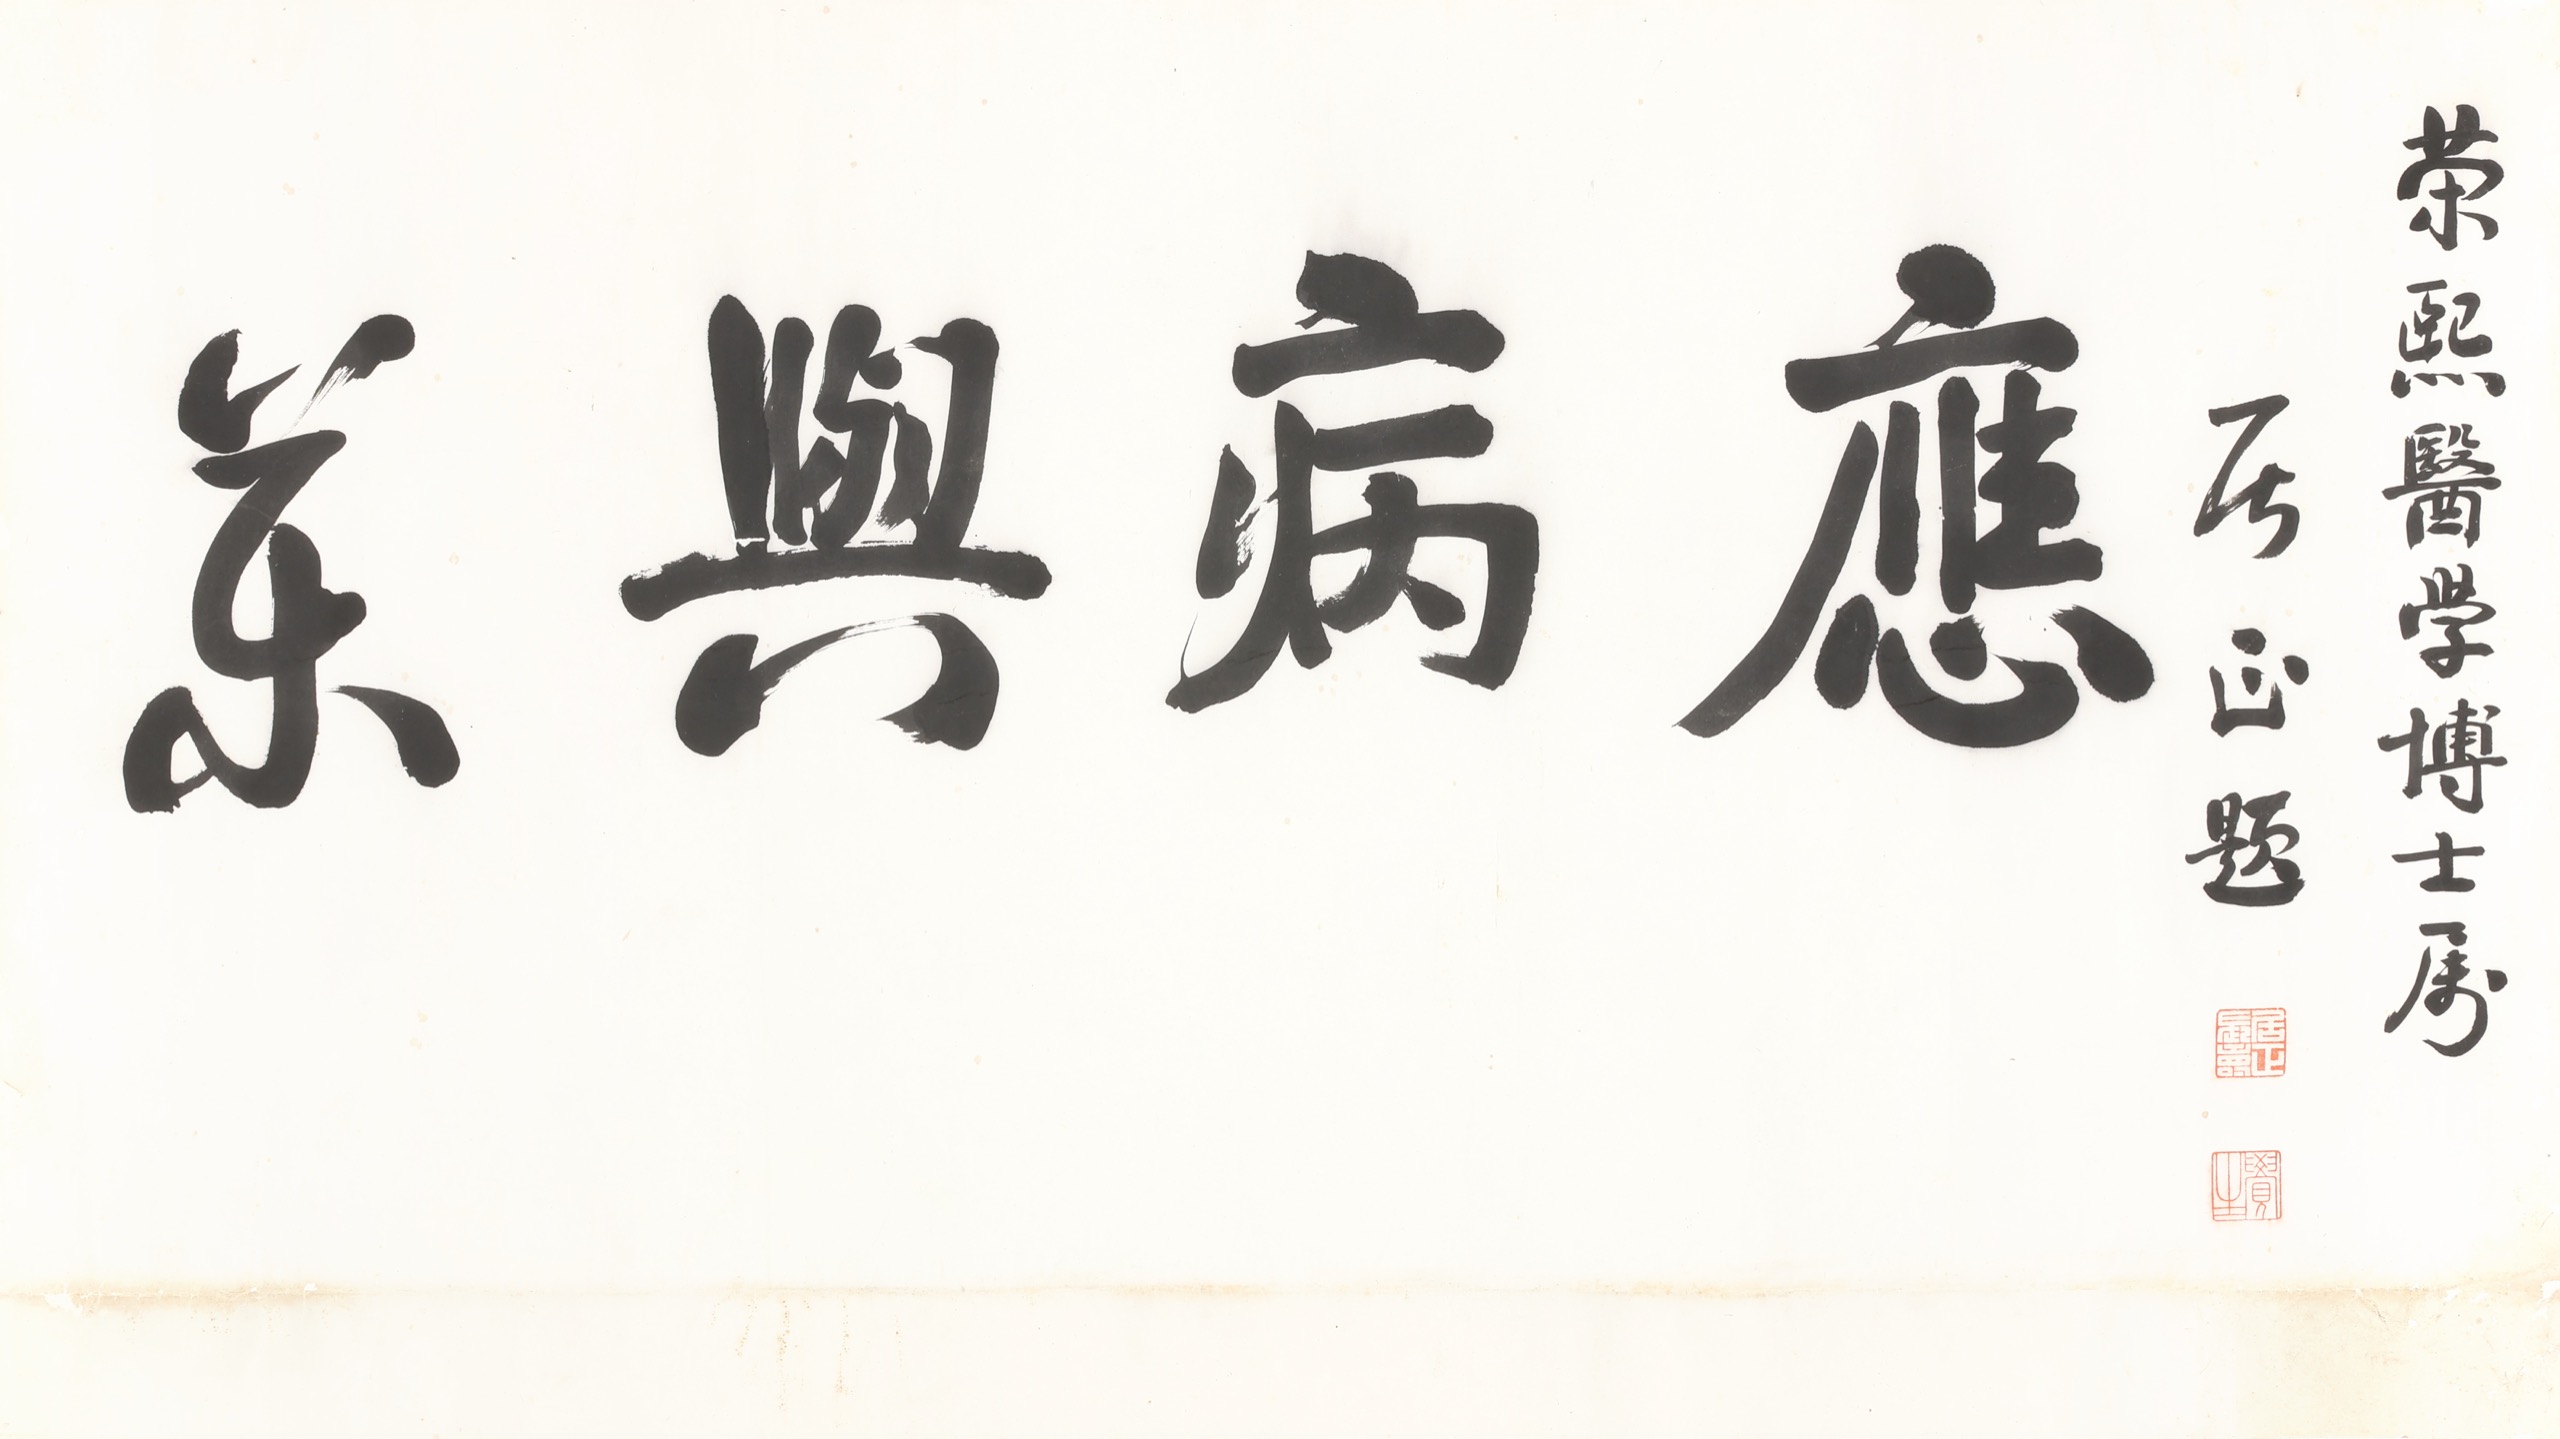 榮熙醫学博士属
居正題
應病與藥
居正
覺生